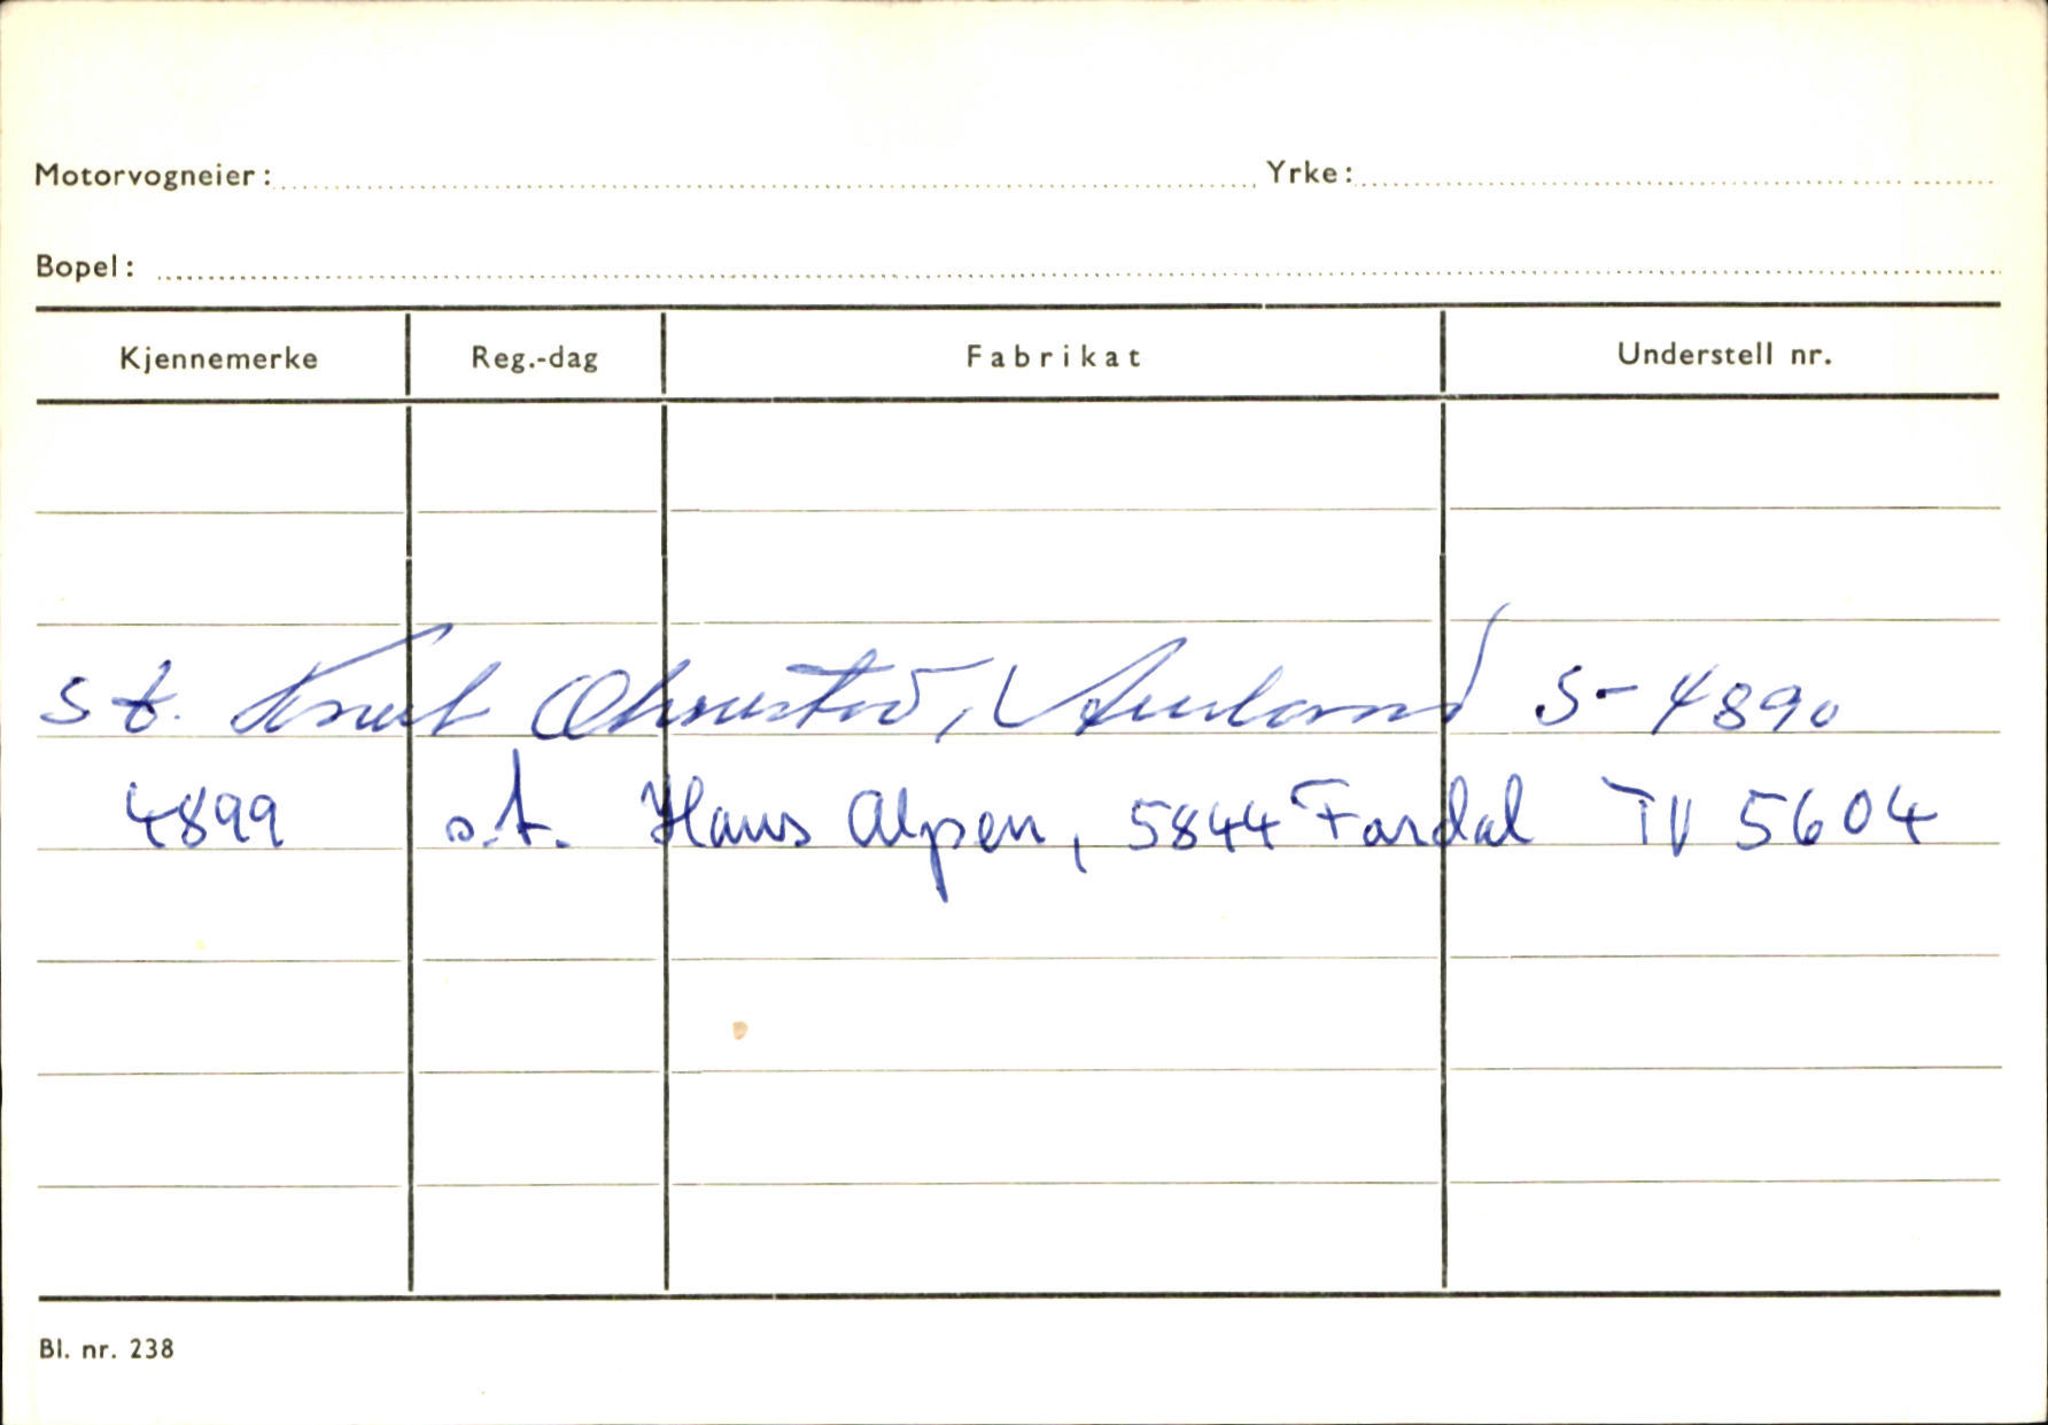 Motorvogneier: Yrke:
Bopel:
Kjennemerke Reg.-dag Fabrikat Understell nr.
st. Knut Ohnstad, Aurland S-4890
4899 s.t. Hans Alpen, 5844 Fardal TV 5604
Bl. nr. 238